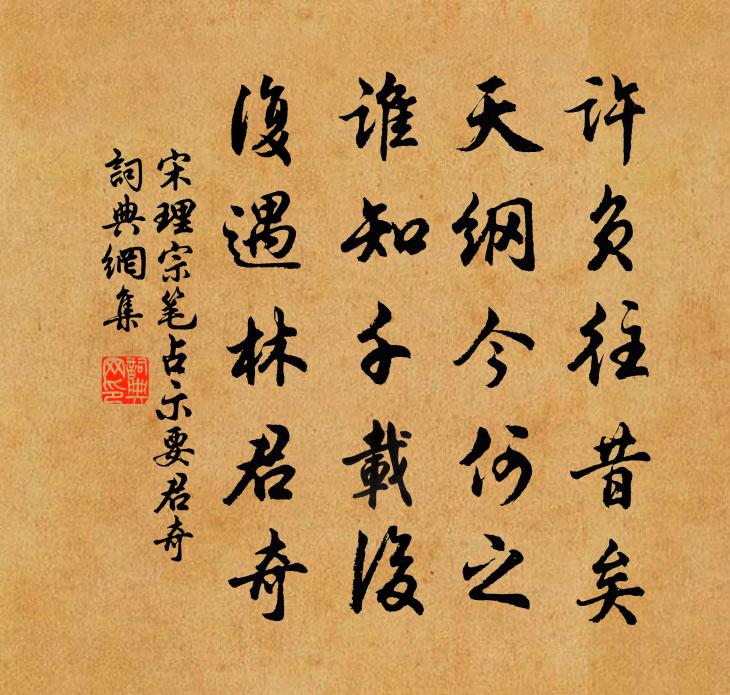 許負往昔矣
天綱今何之
誰知千載後
復遇林君奇
宋理宗笔占示要君奇
詞典網集
詞典
网印